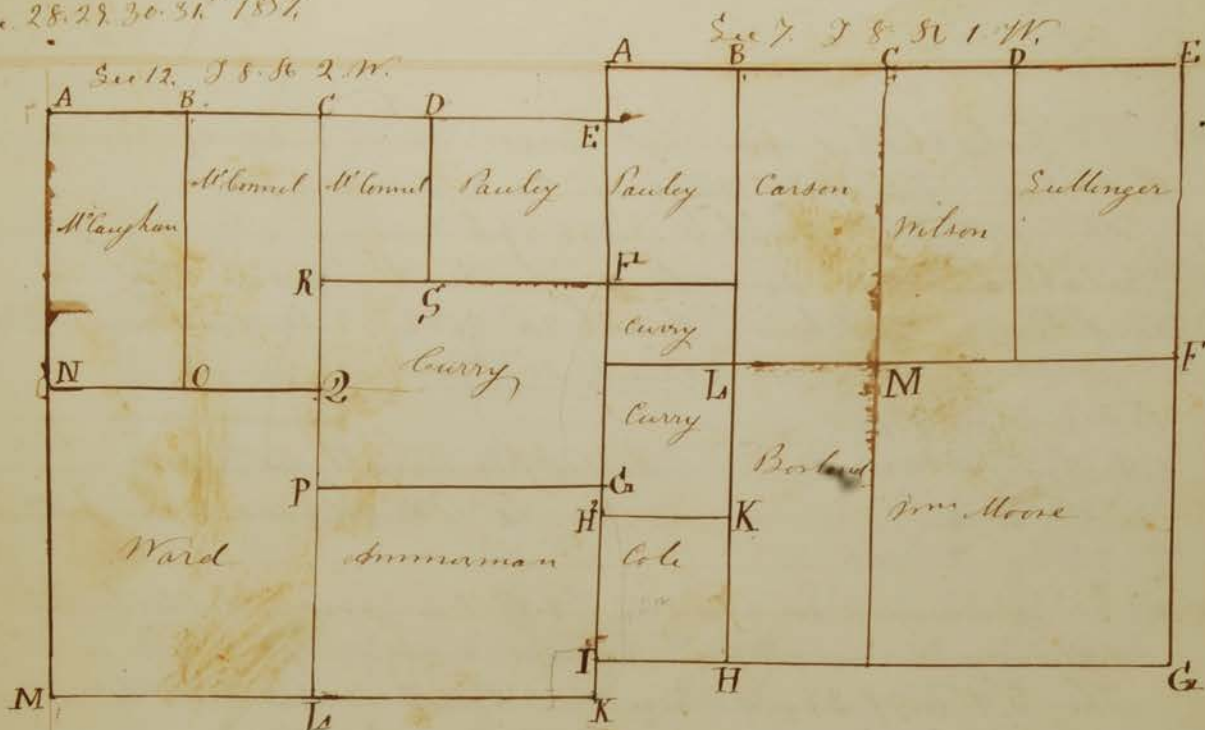 28.29.30.31. 1857.
Sec 7. T 8 R 1 W.
Sec 12. T 8. R 2. W.
A B C D E
A B C D E
McCaughan McConnel McConnel Pauley Pauley Carson Wilson Sullinger
R S F
Curry
N O Q Curry L M F
Curry
P G Borland
H K Wm Moore
Ward Ammerman Cole
I H G
M L K